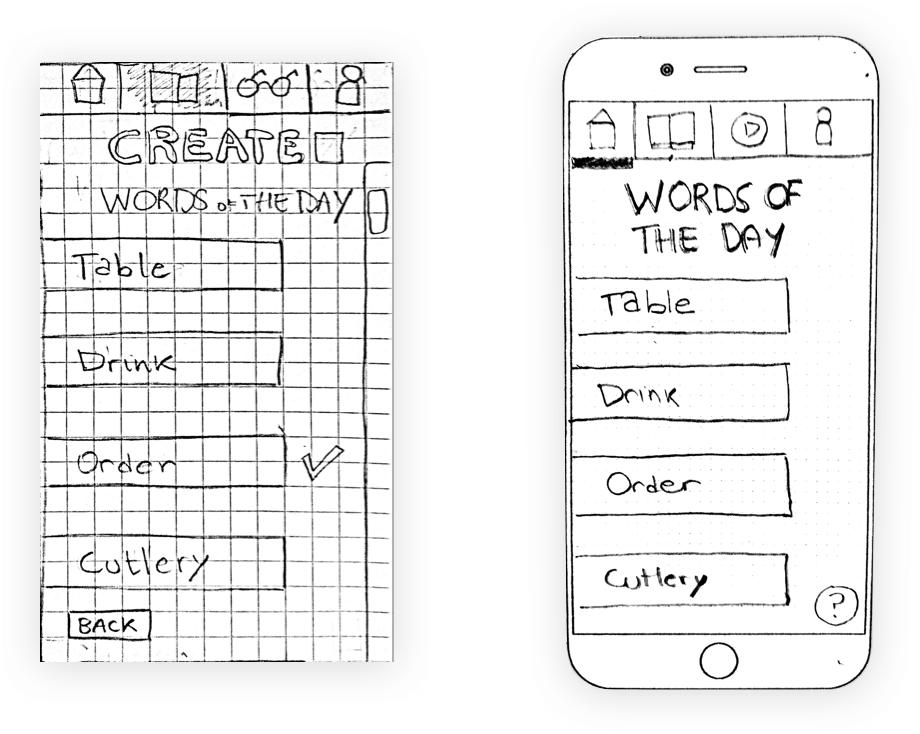 CREATE
WORDS OF THE DAY
Table
Drink
Order
Cutlery
BACK
WORDS OF
THE DAY
Table
Drink
Order
Cutlery
?